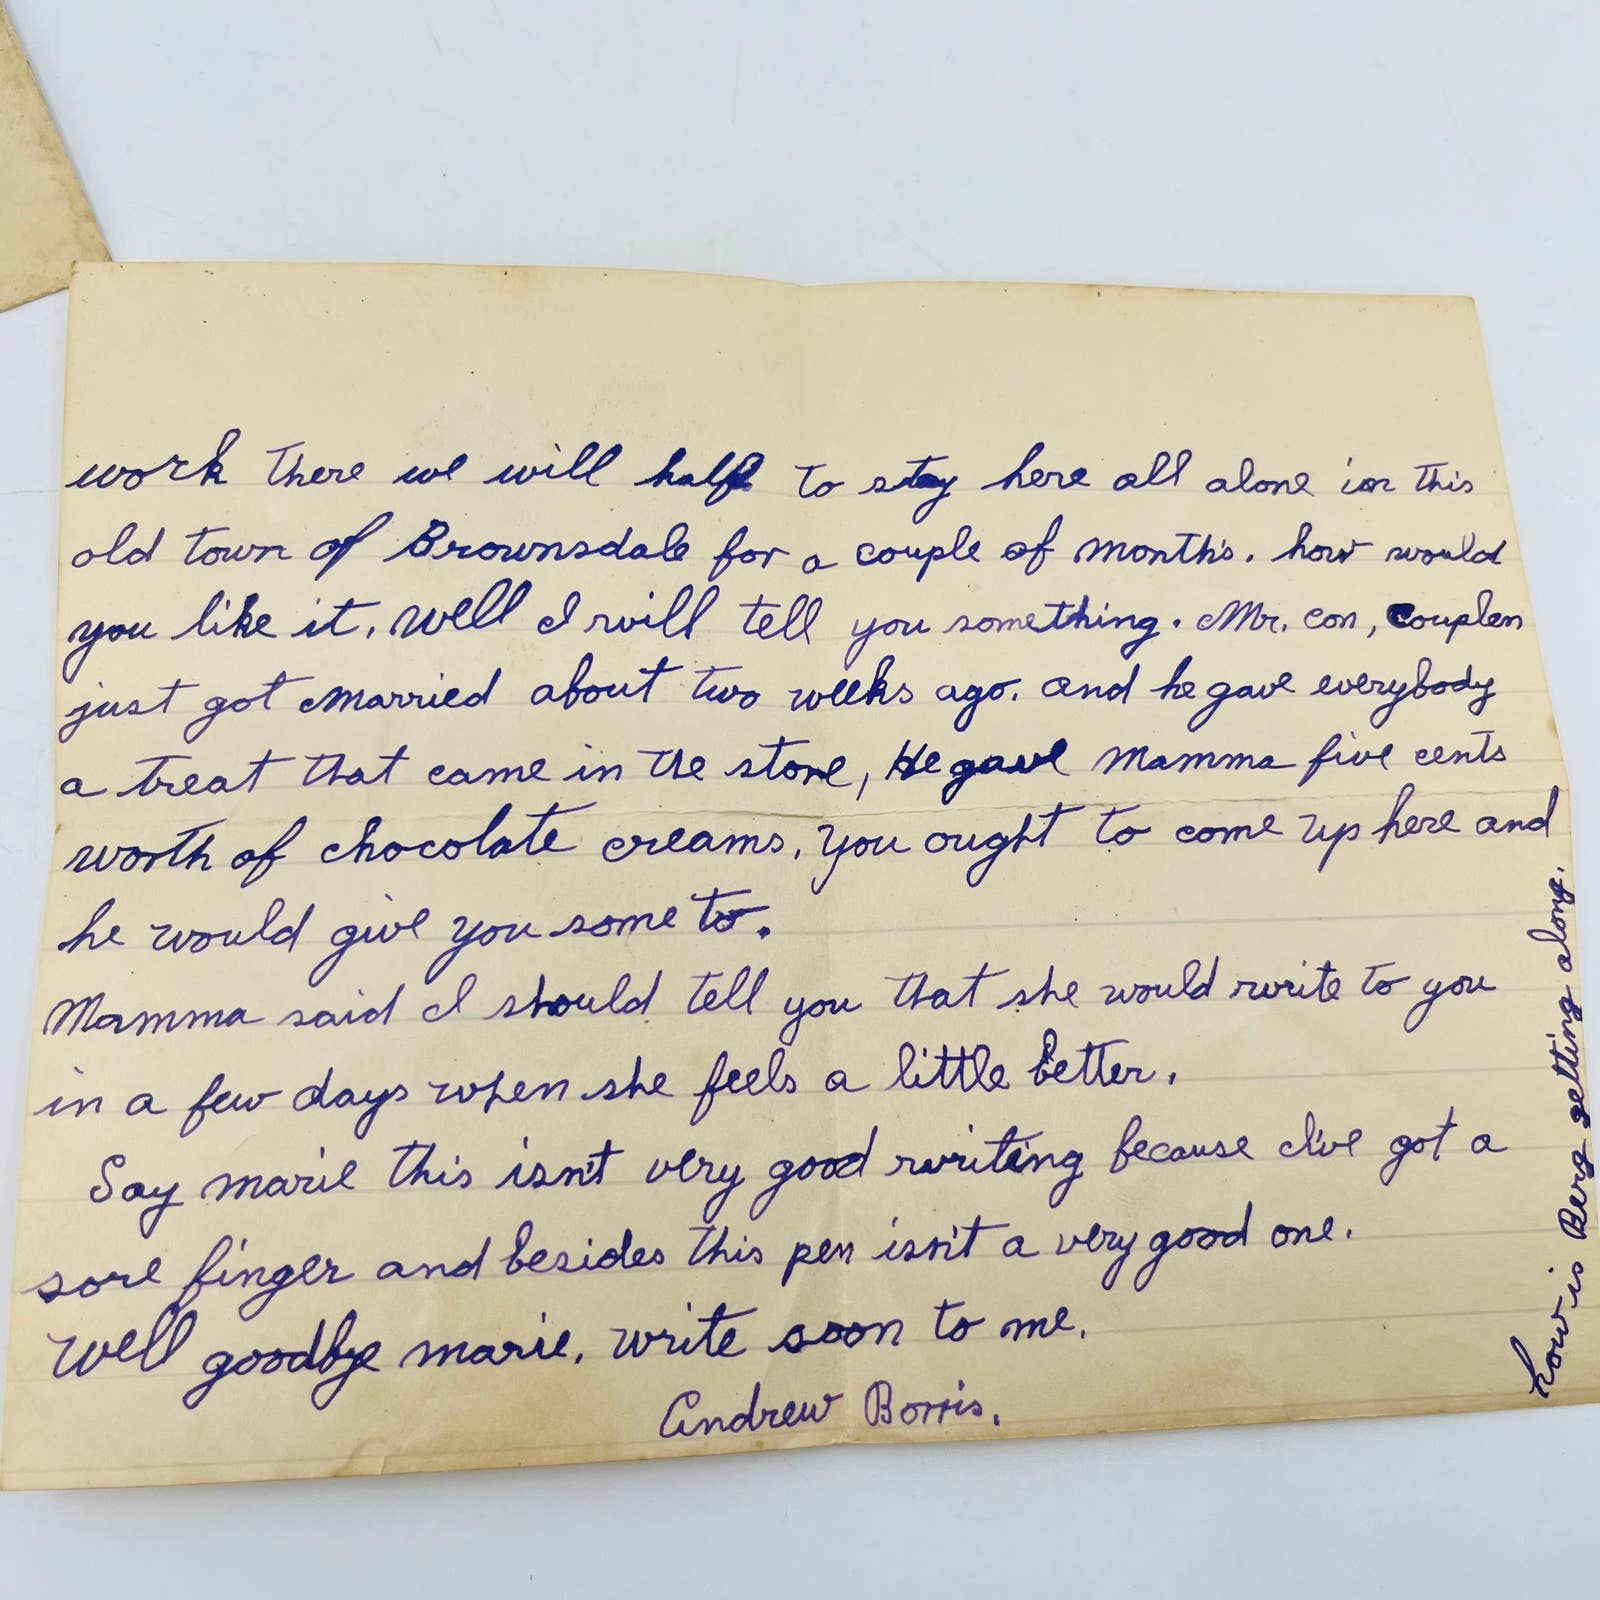 work there we will half to stay here all alone in this
old town of Brownsdale for a couple of months. how would
you like it. Well I will tell you something. Mr. Con, Couplen
just got married about two weeks ago. and he gave everybody
a treat that came in the store, He gave Mamma five cents
worth of chocolate creams. you ought to come up here and
he would give you some to.
Mamma said I should tell you that she would write to you
in a few days when she feels a little better.
Say marie this isn't very good writing because I've got a
sore finger and besides this pen isn't a very good one.
Well goodbye marie. write soon to me.
Andrew Borris.
how is Berg getting along.